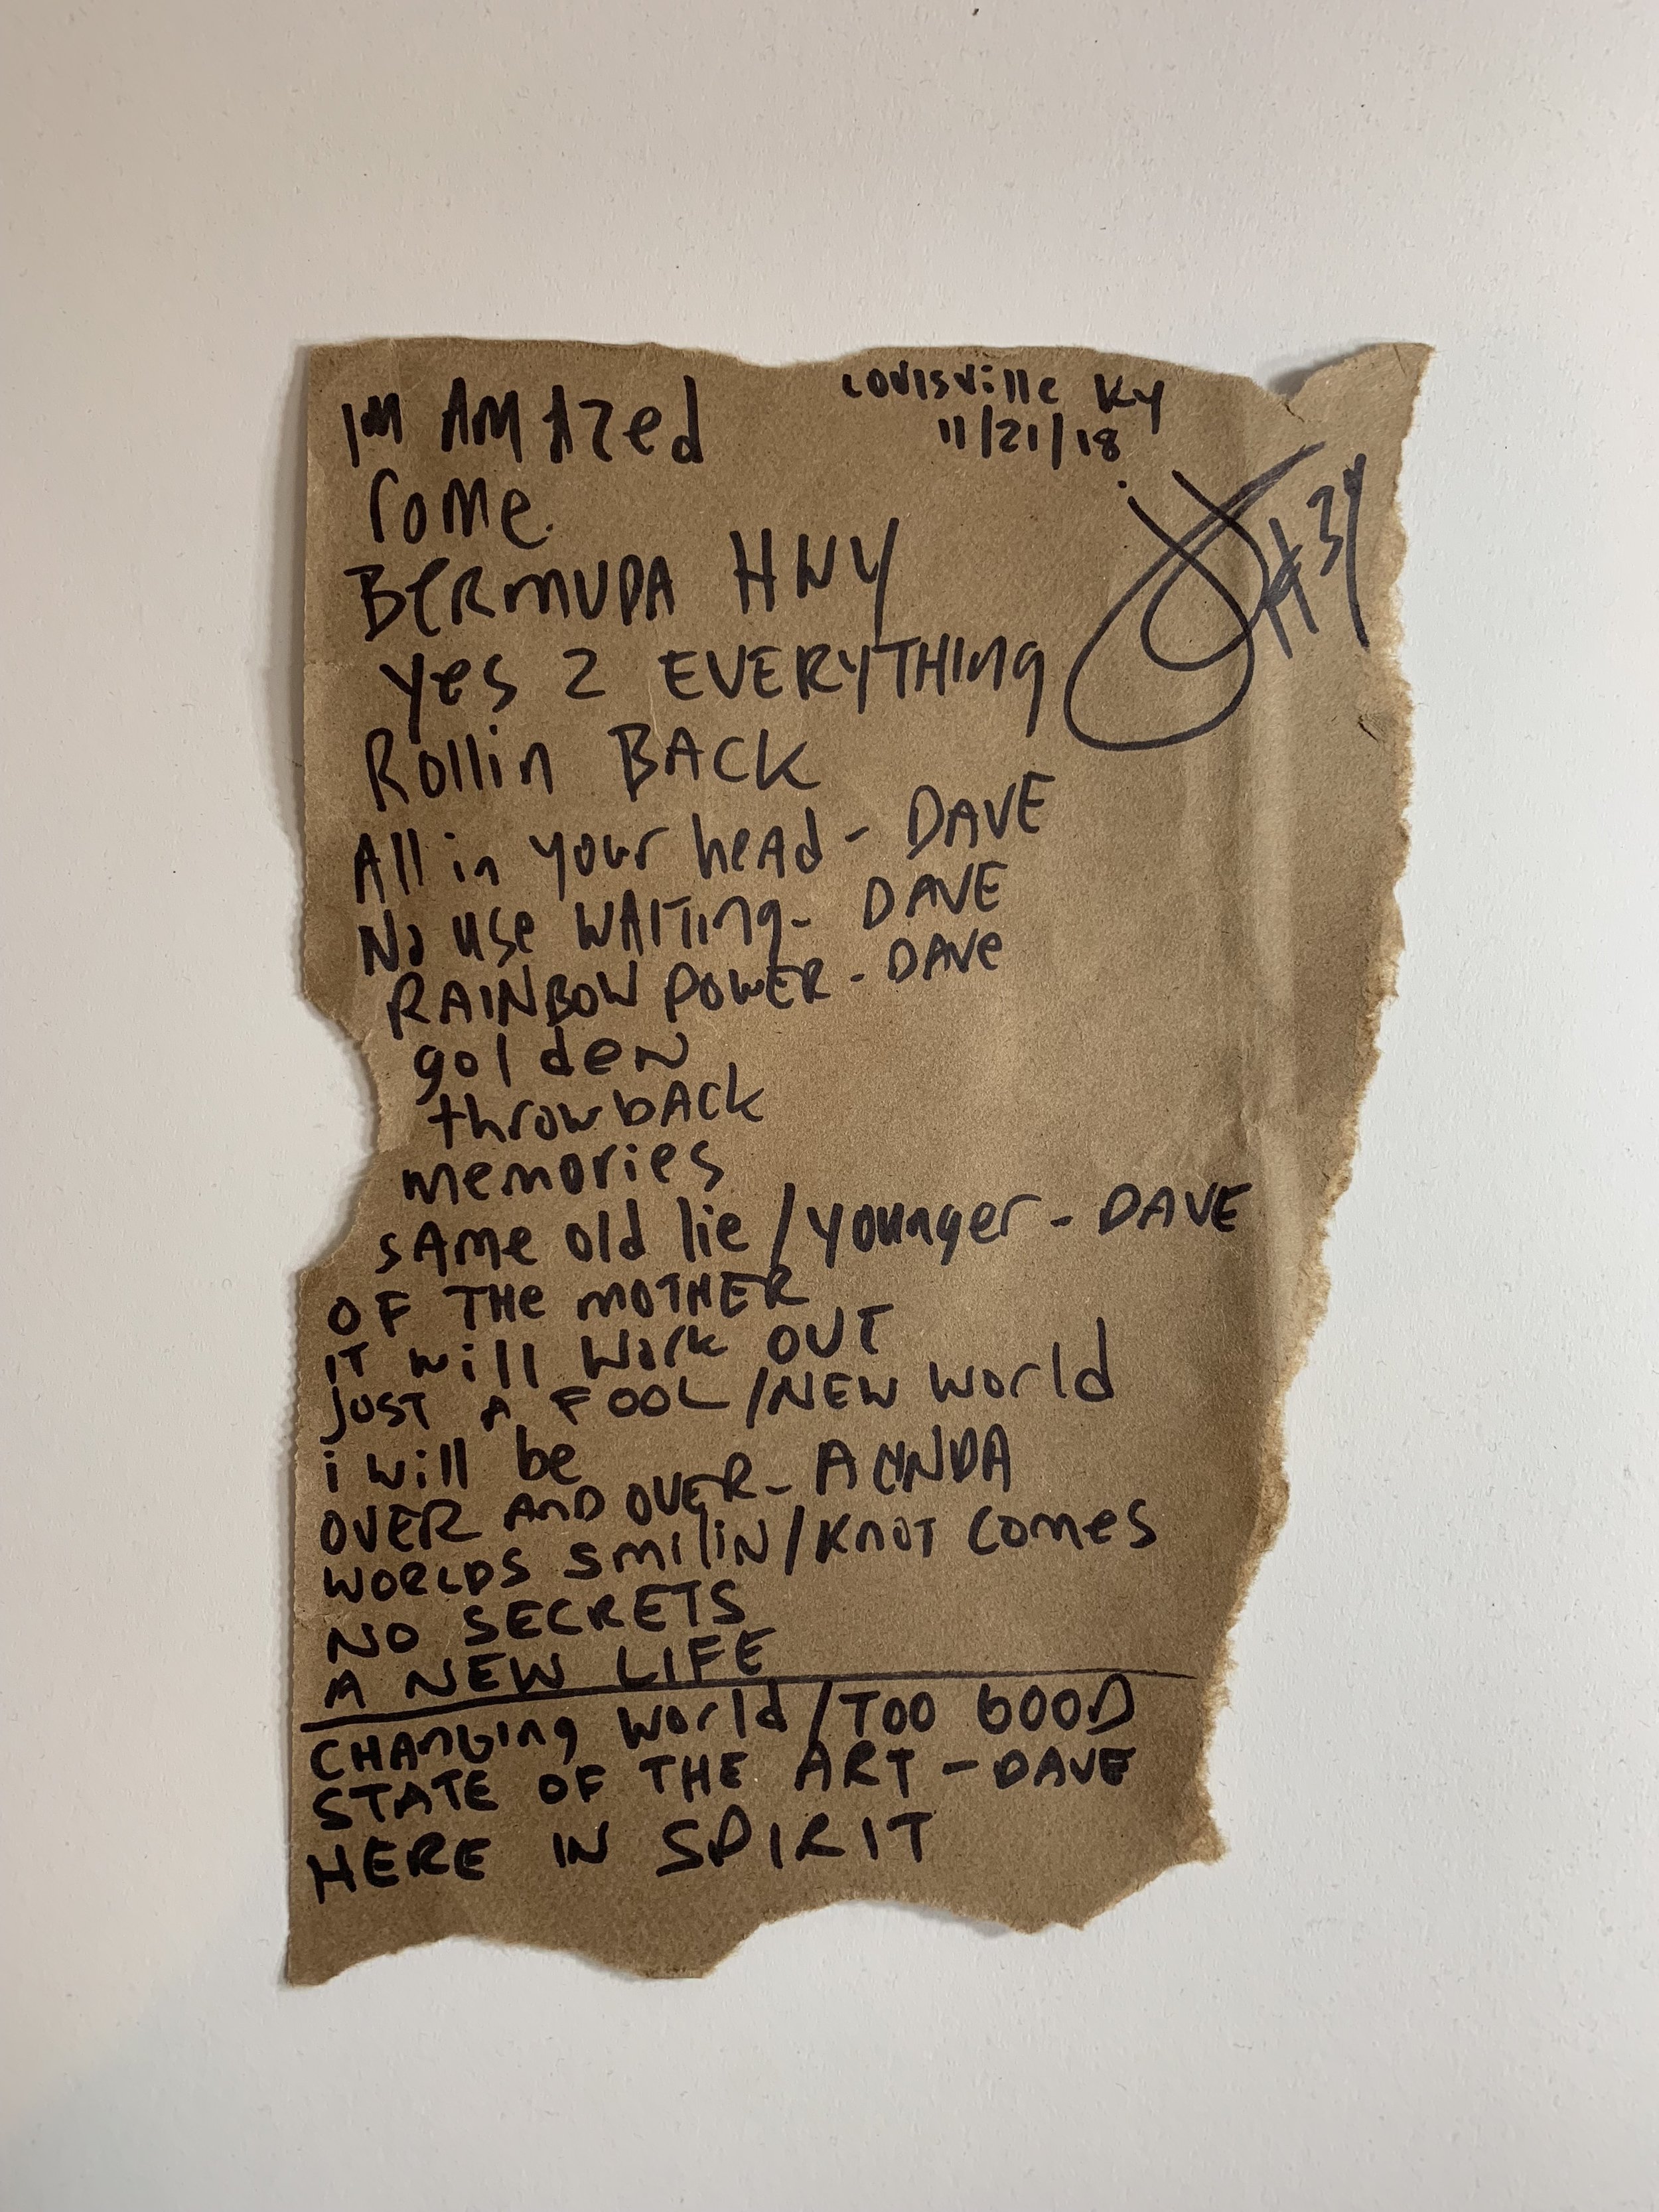 Louisville Ky
11/21/18
#34
IM AMAZed
rome.
BERMUDA HWY
yes 2 EVERYTHINg
Rollin BACK
All in your heAd - DAVE
No use WAITing - DAVE
RAINBOW POWER - DAVe
golden
throwbAck
memories
sAme old lie / younger - DAVE
OF THe MOTHER
IT will work OUT
JUST A FOOL / NEW World
i will be
OVER AnD OVER -
WORLDS SmiliN / KnoT Comes
NO SECRETS
A NEW LIFE
CHAnGing World / TOO GOOD
STATE OF THE ART - DAVE
HERE IN SPIRIT